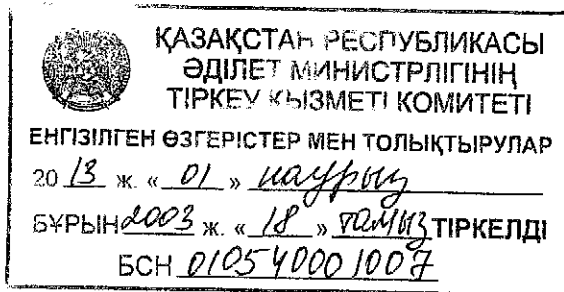 ҚАЗАҚСТАН РЕСПУБЛИКАСЫ
ӘДІЛЕТ МИНИСТРЛІГІНІҢ
ТІРКЕУ ҚЫЗМЕТІ КОМИТЕТІ
ЕНГІЗІЛГЕН ӨЗГЕРІСТЕР МЕН ТОЛЫҚТЫРУЛАР
20 13 ж. « 01 » наурыз
БҰРЫН 2003 ж. « 18 » тамыз ТІРКЕЛДІ
БСН 010540001007